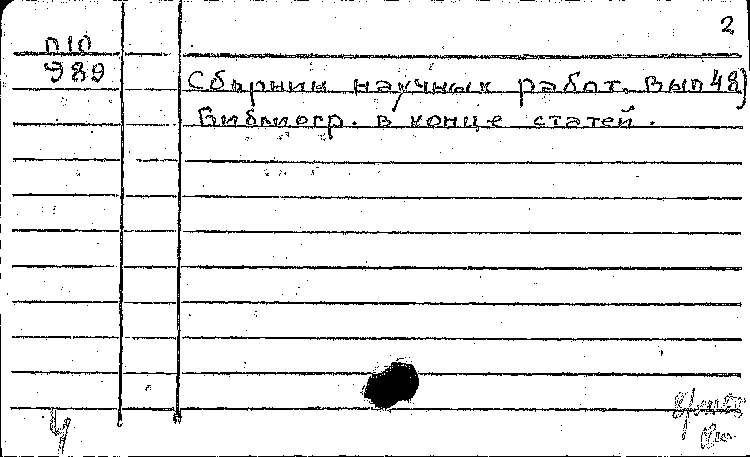 2
П10
989
Сборник научных работ. Вып 48)
Библиогр. в конце статей.